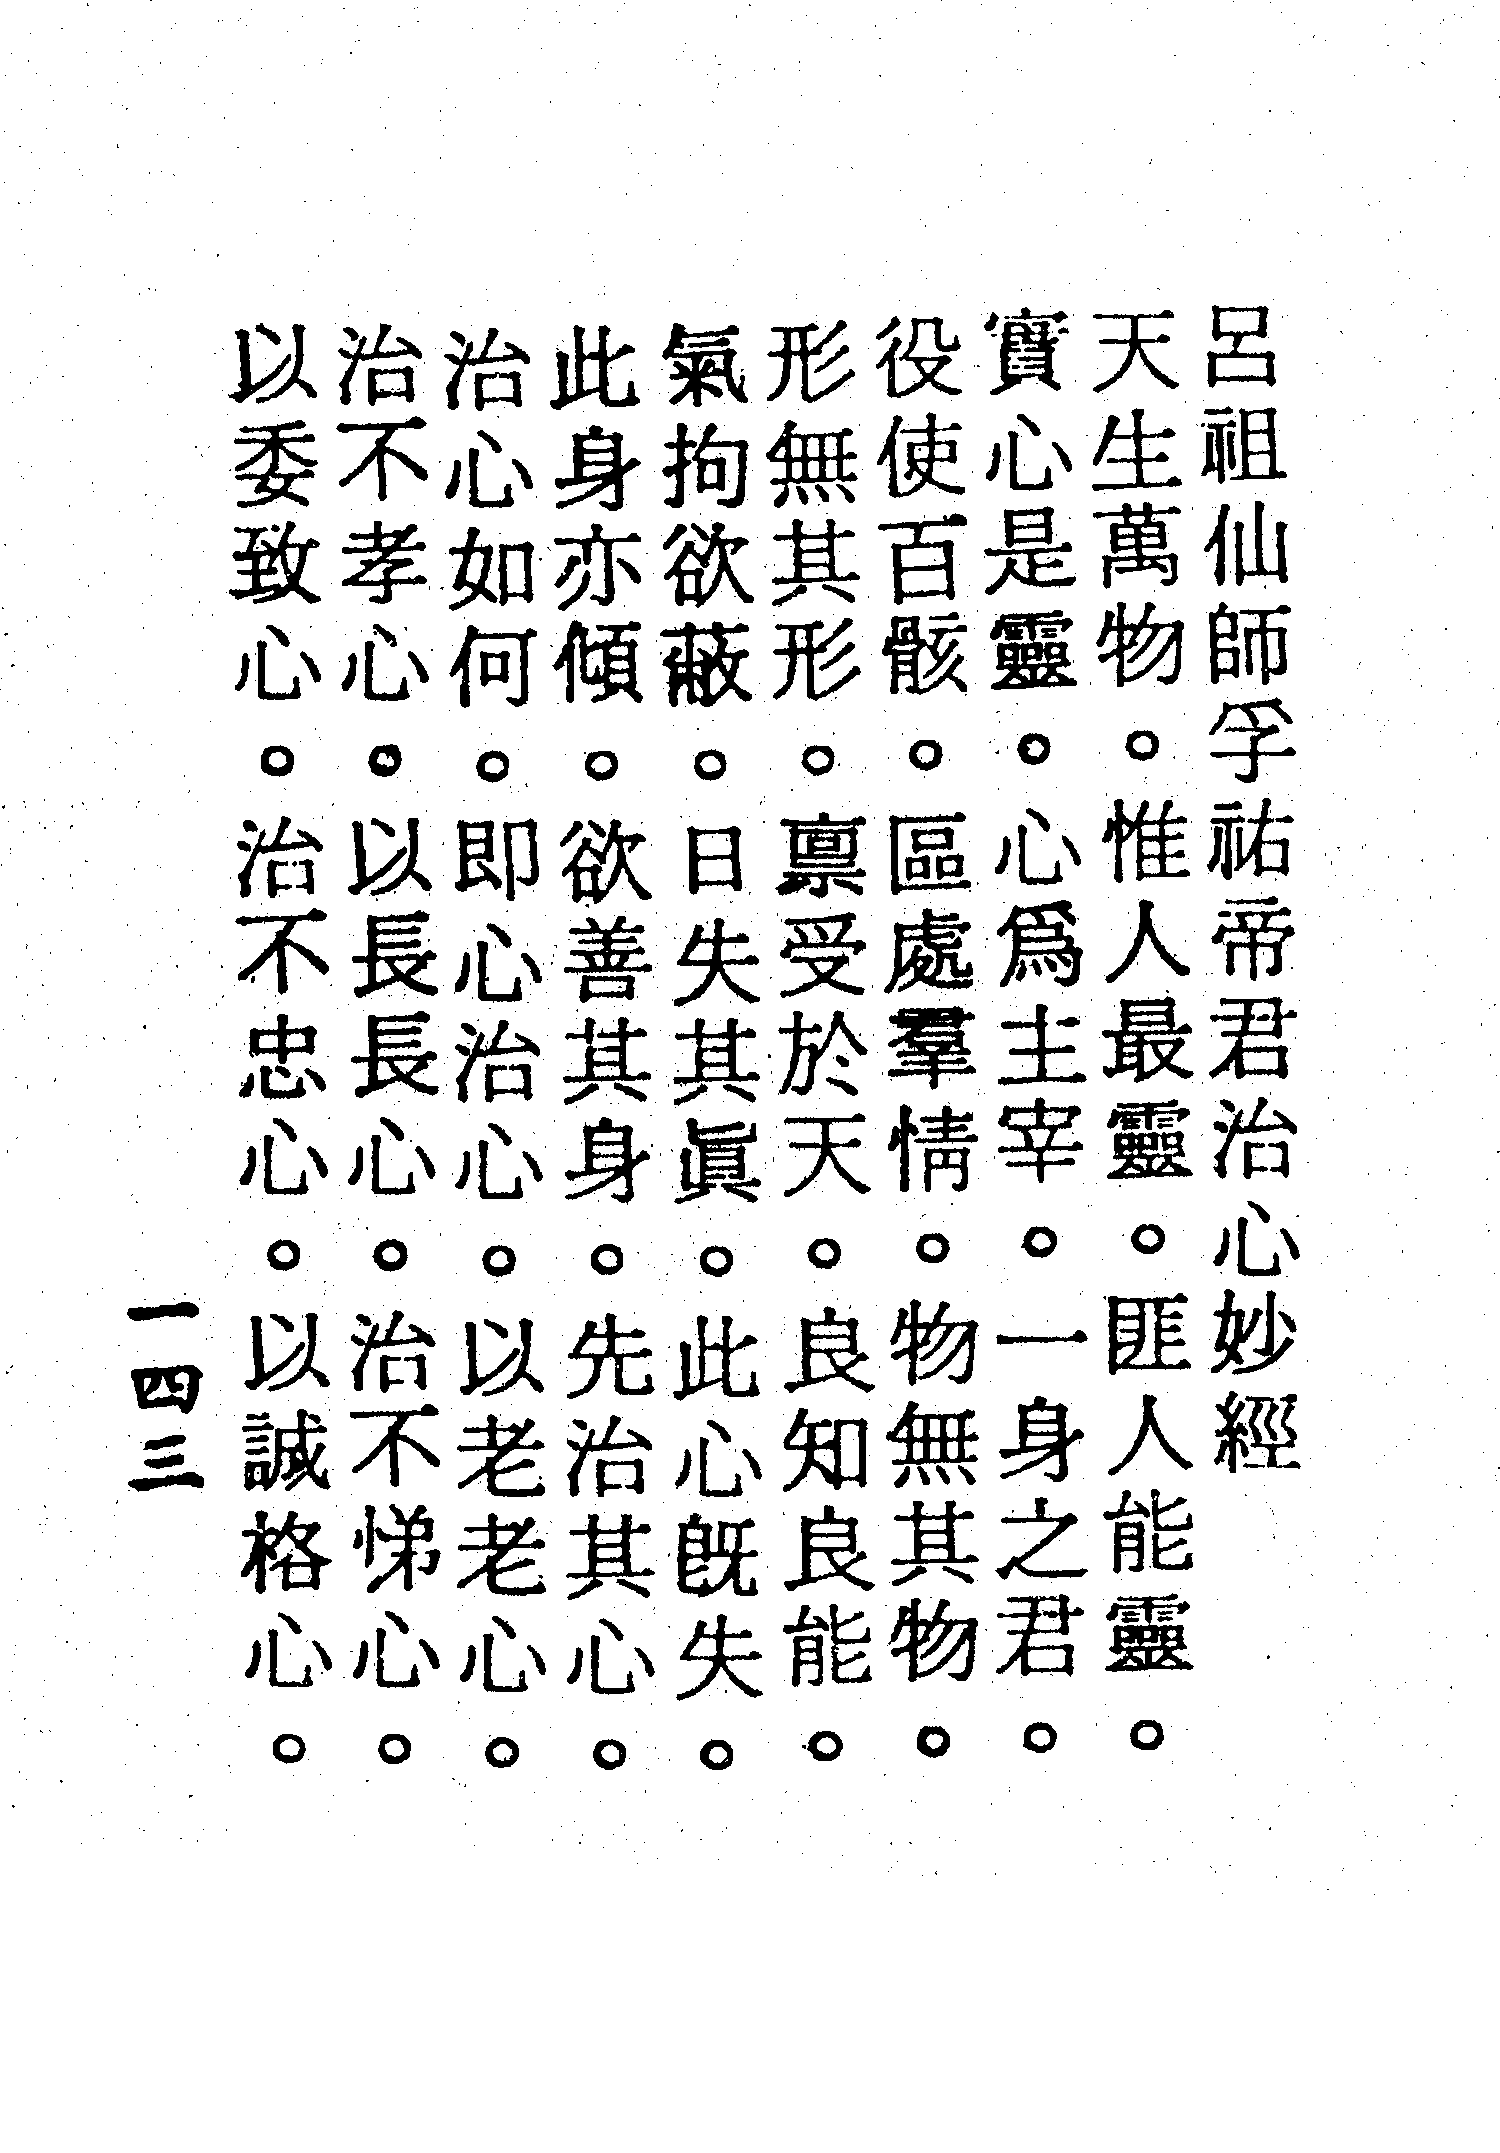 呂祖仙師孚祐帝君治心妙經
天生萬物。惟人最靈。匪人能靈。
實心是靈。心爲主宰。一身之君。
役使百骸。區處羣情。物無其物。
形無其形。禀受於天。良知良能。
氣拘欲蔽。日失其眞。此心旣失。
此身亦傾。欲善其身。先治其心。
治心如何。即心治心。以老老心。
治不孝心。以長長心。治不悌心。
以委致心。治不忠心。以誠格心。
一四三